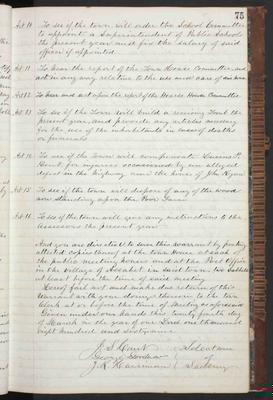 75
Art 10 To see if the town will order the School Committee
to appoint a Superintendent of Public Schools
the present year and fix the salary of said
officer if appointed
Art 11 To hear the report of the Town House Committee and
act in any way relative to the use and care of
Art 12 To hear and act upon the report of the Hearse House Committee
Art 13 To see if the Town will build a receiving Tomb the
present year, and provide any articles necessary
for the use of the inhabitants in cases of deaths
or funerals
Art 14 To see if the Town will compensate
for injuries occasioned by an alleged
defect in the highway near the house of John Ryan
Art 15 To see if the town will dispose of any of the wood
now standing upon the Poor Farm
Art 16 To see if the town will give any instructions to the
Assessors the present year
And you are directed to serve this warrant by posting
attested copies thereof at the town House at each of
the public meeting houses and at the Post Office
in the village of in said town, two Sabbaths
at least before the time of said meeting
Hereof fail not and make due return of this
Warrant with your doings thereon to the town
Clerk at or before the time of meeting as aforesaid
Given under our hands this twenty fourth day
of March in the year of our Lord one thousand
eight hundred and Sixty
Selectmen
of